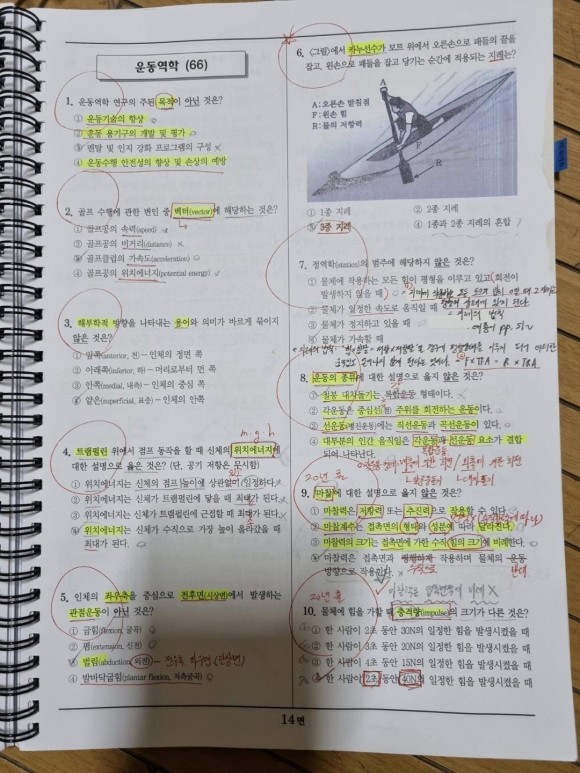 운동역학 (66)
1. 운동역학 연구의 주된 목적이 아닌 것은?
① 운동기술의 향상
② 운동 용기구의 개발 및 평가
③ 멘탈 및 인지 강화 프로그램의 구성
④ 운동수행 안전성의 향상 및 손상의 예방
2. 골프 수행에 관한 변인 중 벡터(vector)에 해당하는 것은?
① 골프공의 속력(speed)
② 골프공의 비거리(distance)
③ 골프클럽의 가속도(acceleration)
④ 골프공의 위치에너지(potential energy)
3. 해부학적 방향을 나타내는 용어와 의미가 바르게 묶이지
않은 것은?
① 앞쪽(anterior, 전) – 인체의 정면 쪽
② 아래쪽(inferior, 하) – 머리로부터 먼 쪽
③ 안쪽(medial, 내측) – 인체의 중심 쪽
④ 얕은(superficial, 표층) – 인체의 안쪽
m·g·h
4. 트램펄린 위에서 점프 동작을 할 때 신체의 위치에너지에
대한 설명으로 옳은 것은? (단, 공기 저항은 무시함)
① 위치에너지는 신체의 점프 높이에 상관없이 일정하다.
② 위치에너지는 신체가 트램펄린에 닿을 때 최대가 된다.
③ 위치에너지는 신체가 트램펄린에 근접할 때 최대가 된다.
④ 위치에너지는 신체가 수직으로 가장 높이 올라갔을 때
최대가 된다.
5. 인체의 좌우축을 중심으로 전후면(시상면)에서 발생하는
관절운동이 아닌 것은?
① 굽힘(flexion, 굴곡)
② 폄(extension, 신전)
③ 벌림(abduction, 외전)
④ 발바닥굽힘(plantar flexion, 저측굴곡)
6. 〈그림〉에서 카누선수가 보트 위에서 오른손으로 패들의 끝을
잡고, 왼손으로 패들을 잡고 당기는 순간에 적용되는 지레는?
A
A: 오른손 받침점
F: 왼손 힘
R: 물의 저항력
F
R
① 1종 지레 ② 2종 지레
③ 3종 지레 ④ 1종과 2종 지레의 혼합
7. 정역학(statics)의 범주에 해당하지 않은 것은?
① 물체에 작용하는 모든 힘이 평형을 이루고 있고(회전이
발생하지 않을 때)
② 물체가 일정한 속도로 움직일 때
③ 물체가 정지하고 있을 때
④ 물체가 가속할 때
F×FA = R×RA
8. 운동의 종류에 대한 설명으로 옳지 않은 것은?
① 철봉 대차돌기는 복합운동 형태이다.
② 각운동은 중심선(점) 주위를 회전하는 운동이다.
③ 선운동(병진운동)에는 직선운동과 곡선운동이 있다.
④ 대부분의 인간 움직임은 각운동과 선운동 요소가 결합
되어 나타난다.
9. 마찰에 대한 설명으로 옳지 않은 것은?
① 마찰력은 저항력 또는 추진력으로 작용할 수 있다.
② 마찰계수는 접촉면의 형태와 성분에 따라 달라진다.
③ 마찰력의 크기는 접촉면에 가한 수직 힘의 크기에 비례한다.
④ 마찰력은 접촉면과 평행하게 작용하며 물체의 운동
방향으로 작용한다.
10. 물체에 힘을 가할 때 충격량(impulse)의 크기가 다른 것은?
① 한 사람이 2초 동안 30N의 일정한 힘을 발생시켰을 때
② 한 사람이 3초 동안 20N의 일정한 힘을 발생시켰을 때
③ 한 사람이 4초 동안 15N의 일정한 힘을 발생시켰을 때
④ 한 사람이 2초 동안 40N의 일정한 힘을 발생시켰을 때
14면